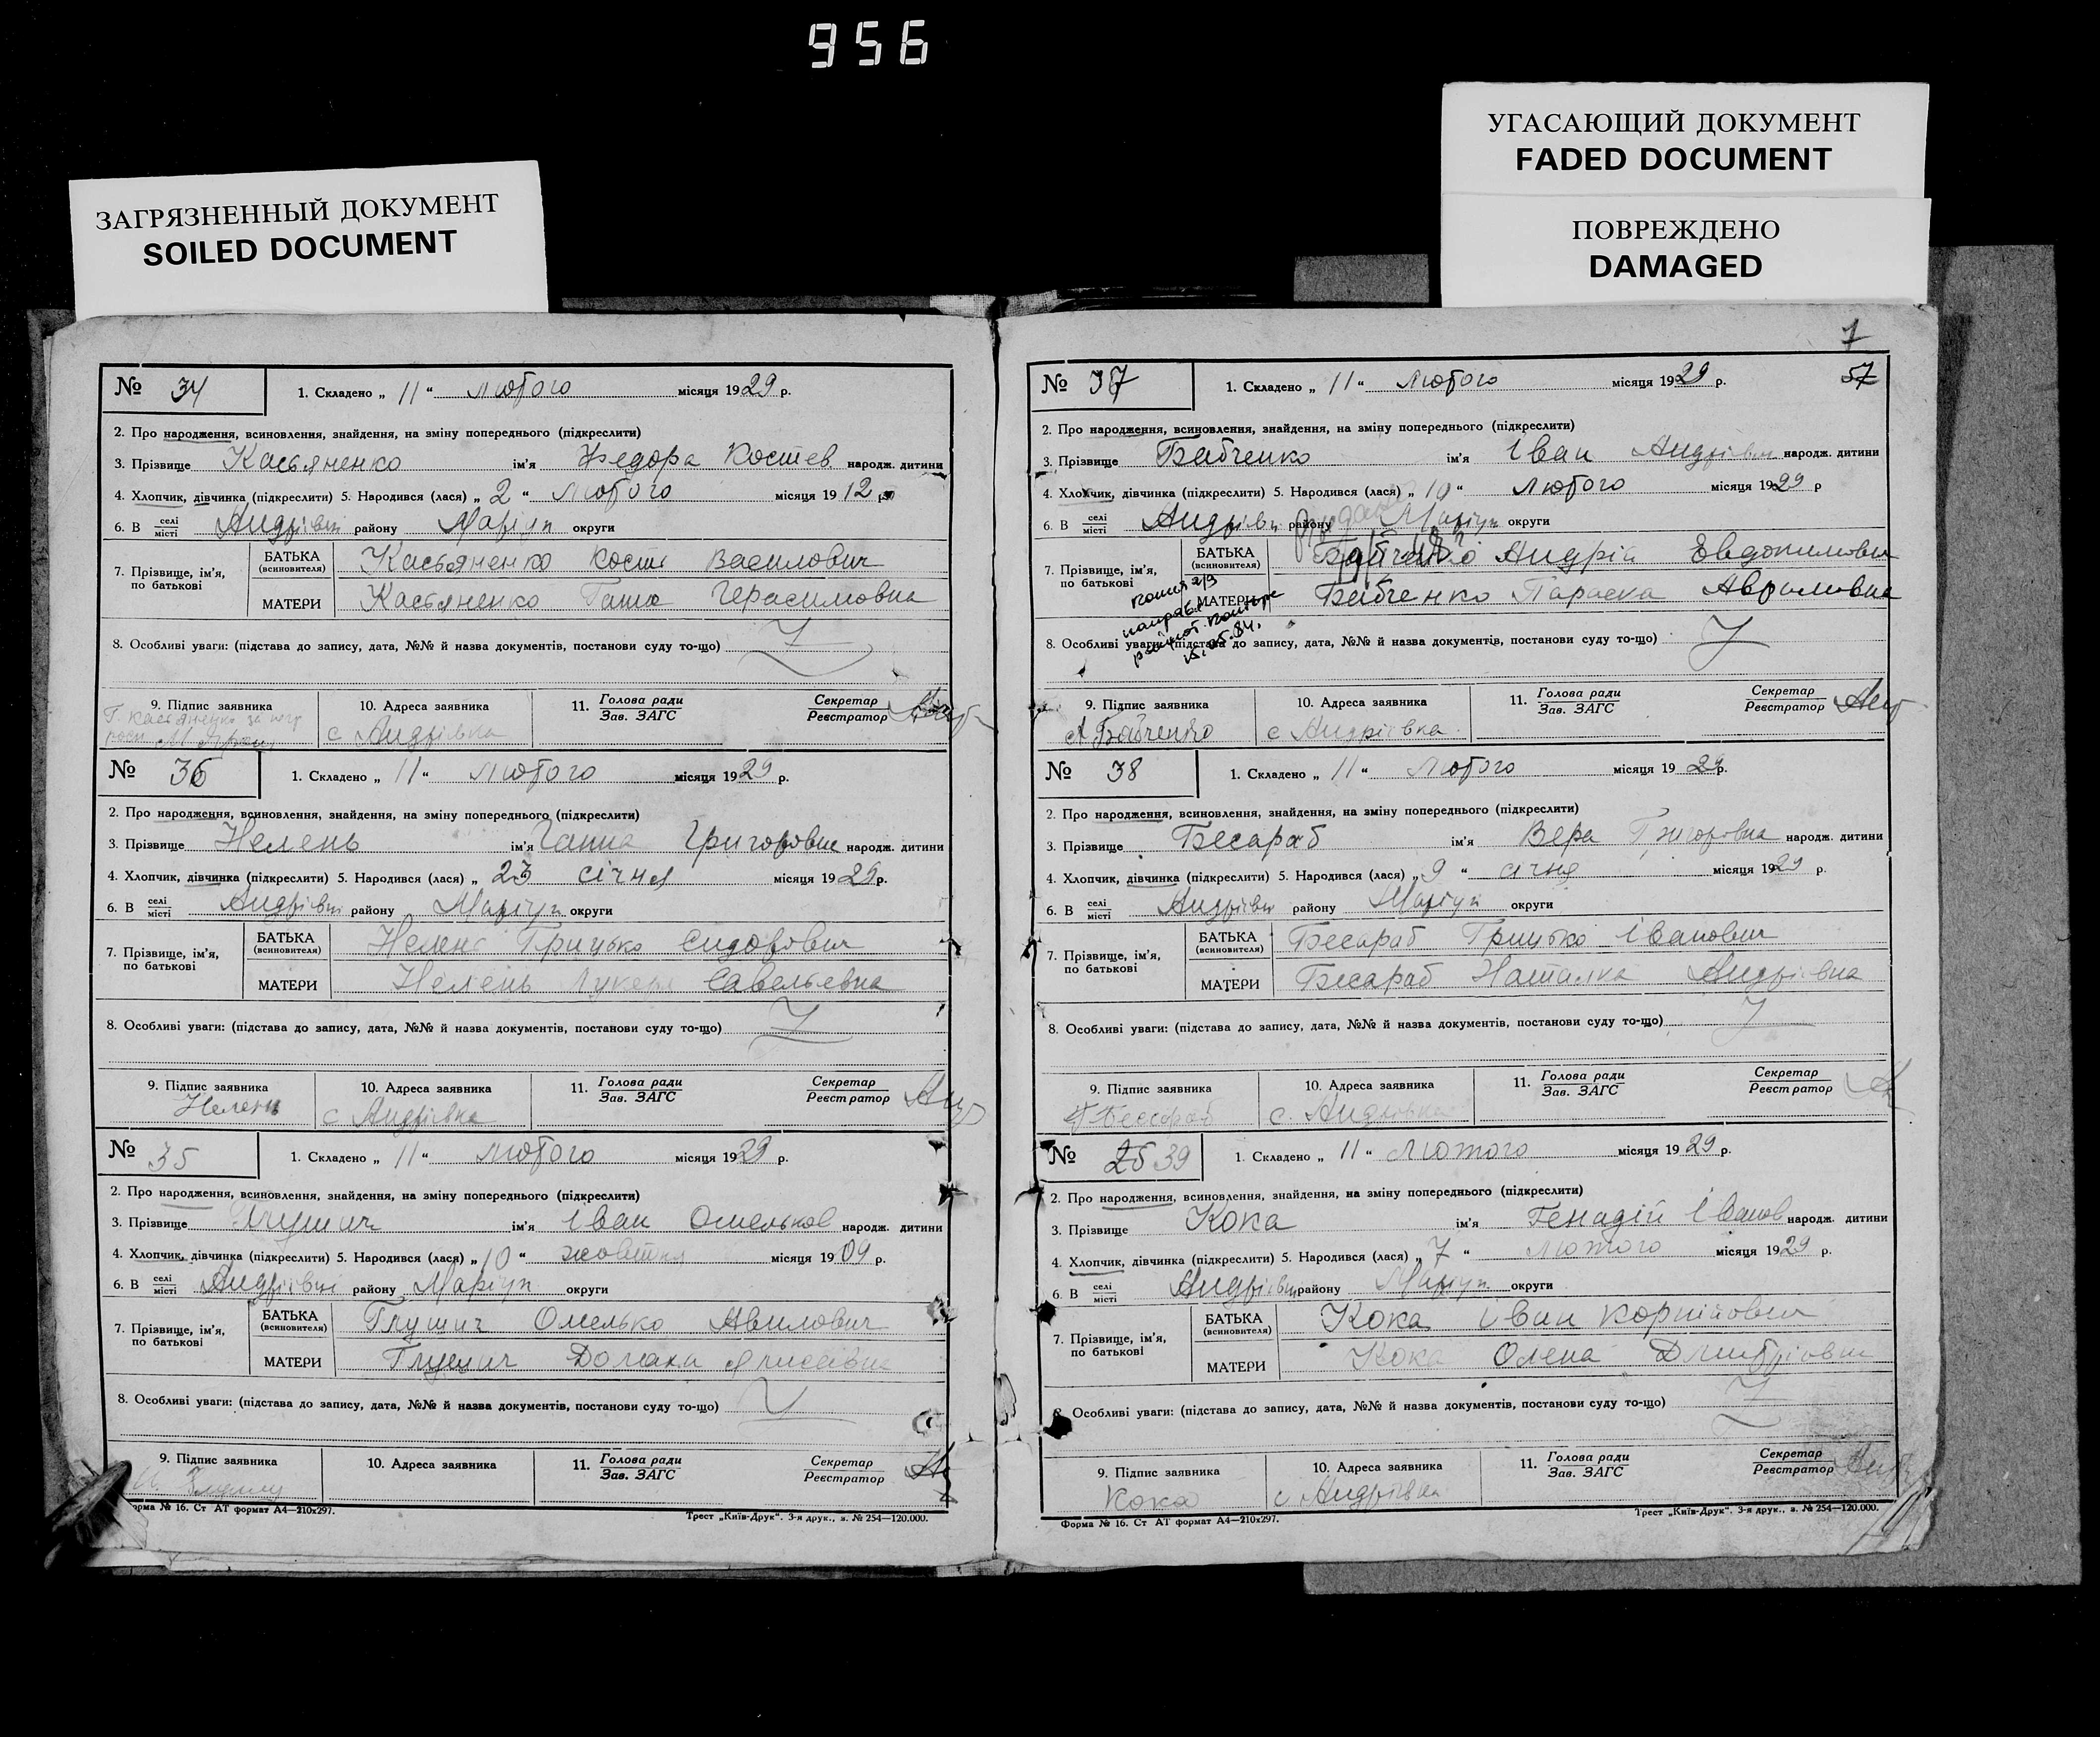 956
ЗАГРЯЗНЕННЫЙ ДОКУМЕНТ
SOILED DOCUMENT
УГАСАЮЩИЙ ДОКУМЕНТ
FADED DOCUMENT
ПОВРЕЖДЕНО
DAMAGED
№ 34 1. Складено „ 11 “ Лютого місяця 1929 р.
2. Про народження, всиновлення, знайдення, на зміну попереднього (підкреслити)
3. Прізвище Касьяненко ім'я Федора Костев народж. дитини
4. Хлопчик, дівчинка (підкреслити) 5. Народився (лася) „ 2 “ Лютого місяця 1912 р.
6. В селі місті Андрівці району Маріуп округи
7. Прізвище, ім'я, по батькові
БАТЬКА (всиновителя) Касьяненко Кость Василович
МАТЕРИ Касьяненко Ганна Герасимовна
8. Особливі уваги: (підстава до запису, дата, №№ й назва документів, постанови суду то-що)
9. Підпис заявника 10. Адреса заявника 11. Голова ради Зав. ЗАГС Секретар Реєстратор
Г. Касьяненко за
с Андріївка
№ 36 1. Складено „ 11 “ Лютого місяця 1929 р.
2. Про народження, всиновлення, знайдення, на зміну попереднього (підкреслити)
3. Прізвище Нелень ім'я Ганна Григоровне народж. дитини
4. Хлопчик, дівчинка (підкреслити) 5. Народився (лася) „ 23 січня місяця 1929 р.
6. В селі місті Андрівці району Маріуп округи
7. Прізвище, ім'я, по батькові
БАТЬКА (всиновителя) Нелень Грицько Сидорович
МАТЕРИ Нелень Лукер Савельевна
8. Особливі уваги: (підстава до запису, дата, №№ й назва документів, постанови суду то-що)
9. Підпис заявника 10. Адреса заявника 11. Голова ради Зав. ЗАГС Секретар Реєстратор
Нелень с Андріївка
№ 35 1. Складено „ 11 “ Лютого місяця 1929 р.
2. Про народження, всиновлення, знайдення, на зміну попереднього (підкреслити)
3. Прізвище Глушич ім'я Іван Омельков народж. дитини
4. Хлопчик, дівчинка (підкреслити) 5. Народився (лася) „ 10 “ жовтня місяця 1909 р.
6. В селі місті Андрівці району Маріуп округи
7. Прізвище, ім'я, по батькові
БАТЬКА (всиновителя) Глушич Омелько Авилович
МАТЕРИ Глушич Домаха
8. Особливі уваги: (підстава до запису, дата, №№ й назва документів, постанови суду то-що)
9. Підпис заявника 10. Адреса заявника 11. Голова ради Зав. ЗАГС Секретар Реєстратор
орма № 16. Ст АТ формат А4—210х297. Трест „Київ-Друк“. 3-я друк., з. № 254—120.000.
7
57
№ 37 1. Складено „ 11 “ Лютого місяця 1929 р.
2. Про народження, всиновлення, знайдення, на зміну попереднього (підкреслити)
3. Прізвище Бабченко ім'я Іван Андрієвич народж. дитини
4. Хлопчик, дівчинка (підкреслити) 5. Народився (лася) „ 10 “ Лютого місяця 1929 р
6. В селі місті Андрівці району Маріуп округи
7. Прізвище, ім'я, по батькові
БАТЬКА (всиновителя) Бабченко Андрій Евдокимович
МАТЕРИ Бабченко Параска Аврамовна
8. Особливі уваги: (підстава до запису, дата, №№ й назва документів, постанови суду то-що)
9. Підпис заявника 10. Адреса заявника 11. Голова ради Зав. ЗАГС Секретар Реєстратор
А Бабченко с Андріївка.
№ 38 1. Складено „ 11 “ Лютого місяця 1929 р.
2. Про народження, всиновлення, знайдення, на зміну попереднього (підкреслити)
3. Прізвище Бесараб ім'я Вера Григоровна народж. дитини
4. Хлопчик, дівчинка (підкреслити) 5. Народився (лася) „ 9 “ січня місяця 1929 р.
6. В селі місті Андрівці району Маріуп округи
7. Прізвище, ім'я, по батькові
БАТЬКА (всиновителя) Бесараб Грицько Іванович
МАТЕРИ Бесараб Наталка Андрієвна
8. Особливі уваги: (підстава до запису, дата, №№ й назва документів, постанови суду то-що)
9. Підпис заявника 10. Адреса заявника 11. Голова ради Зав. ЗАГС Секретар Реєстратор
Бессараб с. Андріївка
№ 39 1. Складено „ 11 “ Лютого місяця 1929 р.
2. Про народження, всиновлення, знайдення, на зміну попереднього (підкреслити)
3. Прізвище Кока ім'я Генадій Іванов народж. дитини
4. Хлопчик, дівчинка (підкреслити) 5. Народився (лася) „ 7 “ Лютого місяця 1929 р.
6. В селі місті Андрівці району Маріуп округи
7. Прізвище, ім'я, по батькові
БАТЬКА (всиновителя) Кока Іван Корнійович
МАТЕРИ Кока Олена Дмитріовна
8. Особливі уваги: (підстава до запису, дата, №№ й назва документів, постанови суду то-що)
9. Підпис заявника 10. Адреса заявника 11. Голова ради Зав. ЗАГС Секретар Реєстратор
Кока с. Андріївка
Форма № 16. Ст АТ формат А4—210х297. Трест „Київ-Друк“. 3-я друк., з. № 254—120.000.